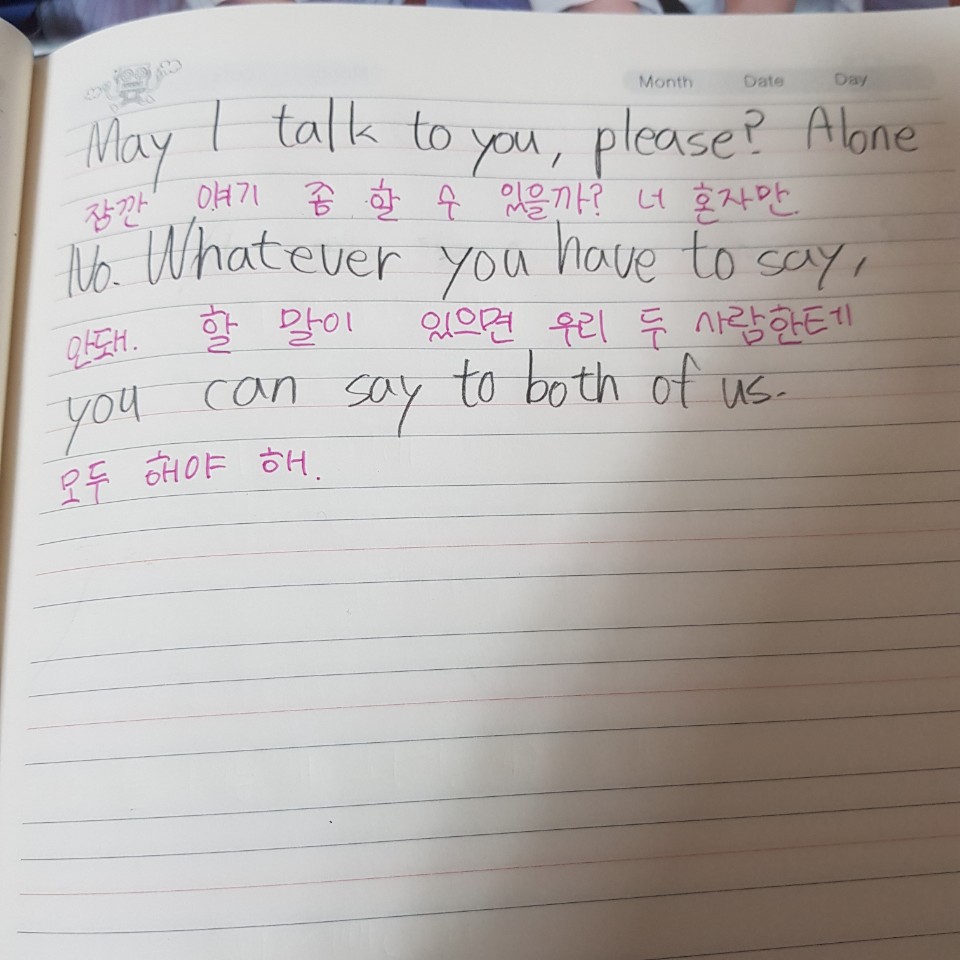 Month Date Day
May I talk to you, please? Alone
잠깐 얘기 좀 할 수 있을까? 너 혼자만.
No. Whatever you have to say,
안돼. 할 말이 있으면 우리 두 사람한테
you can say to both of us.
모두 해야 해.